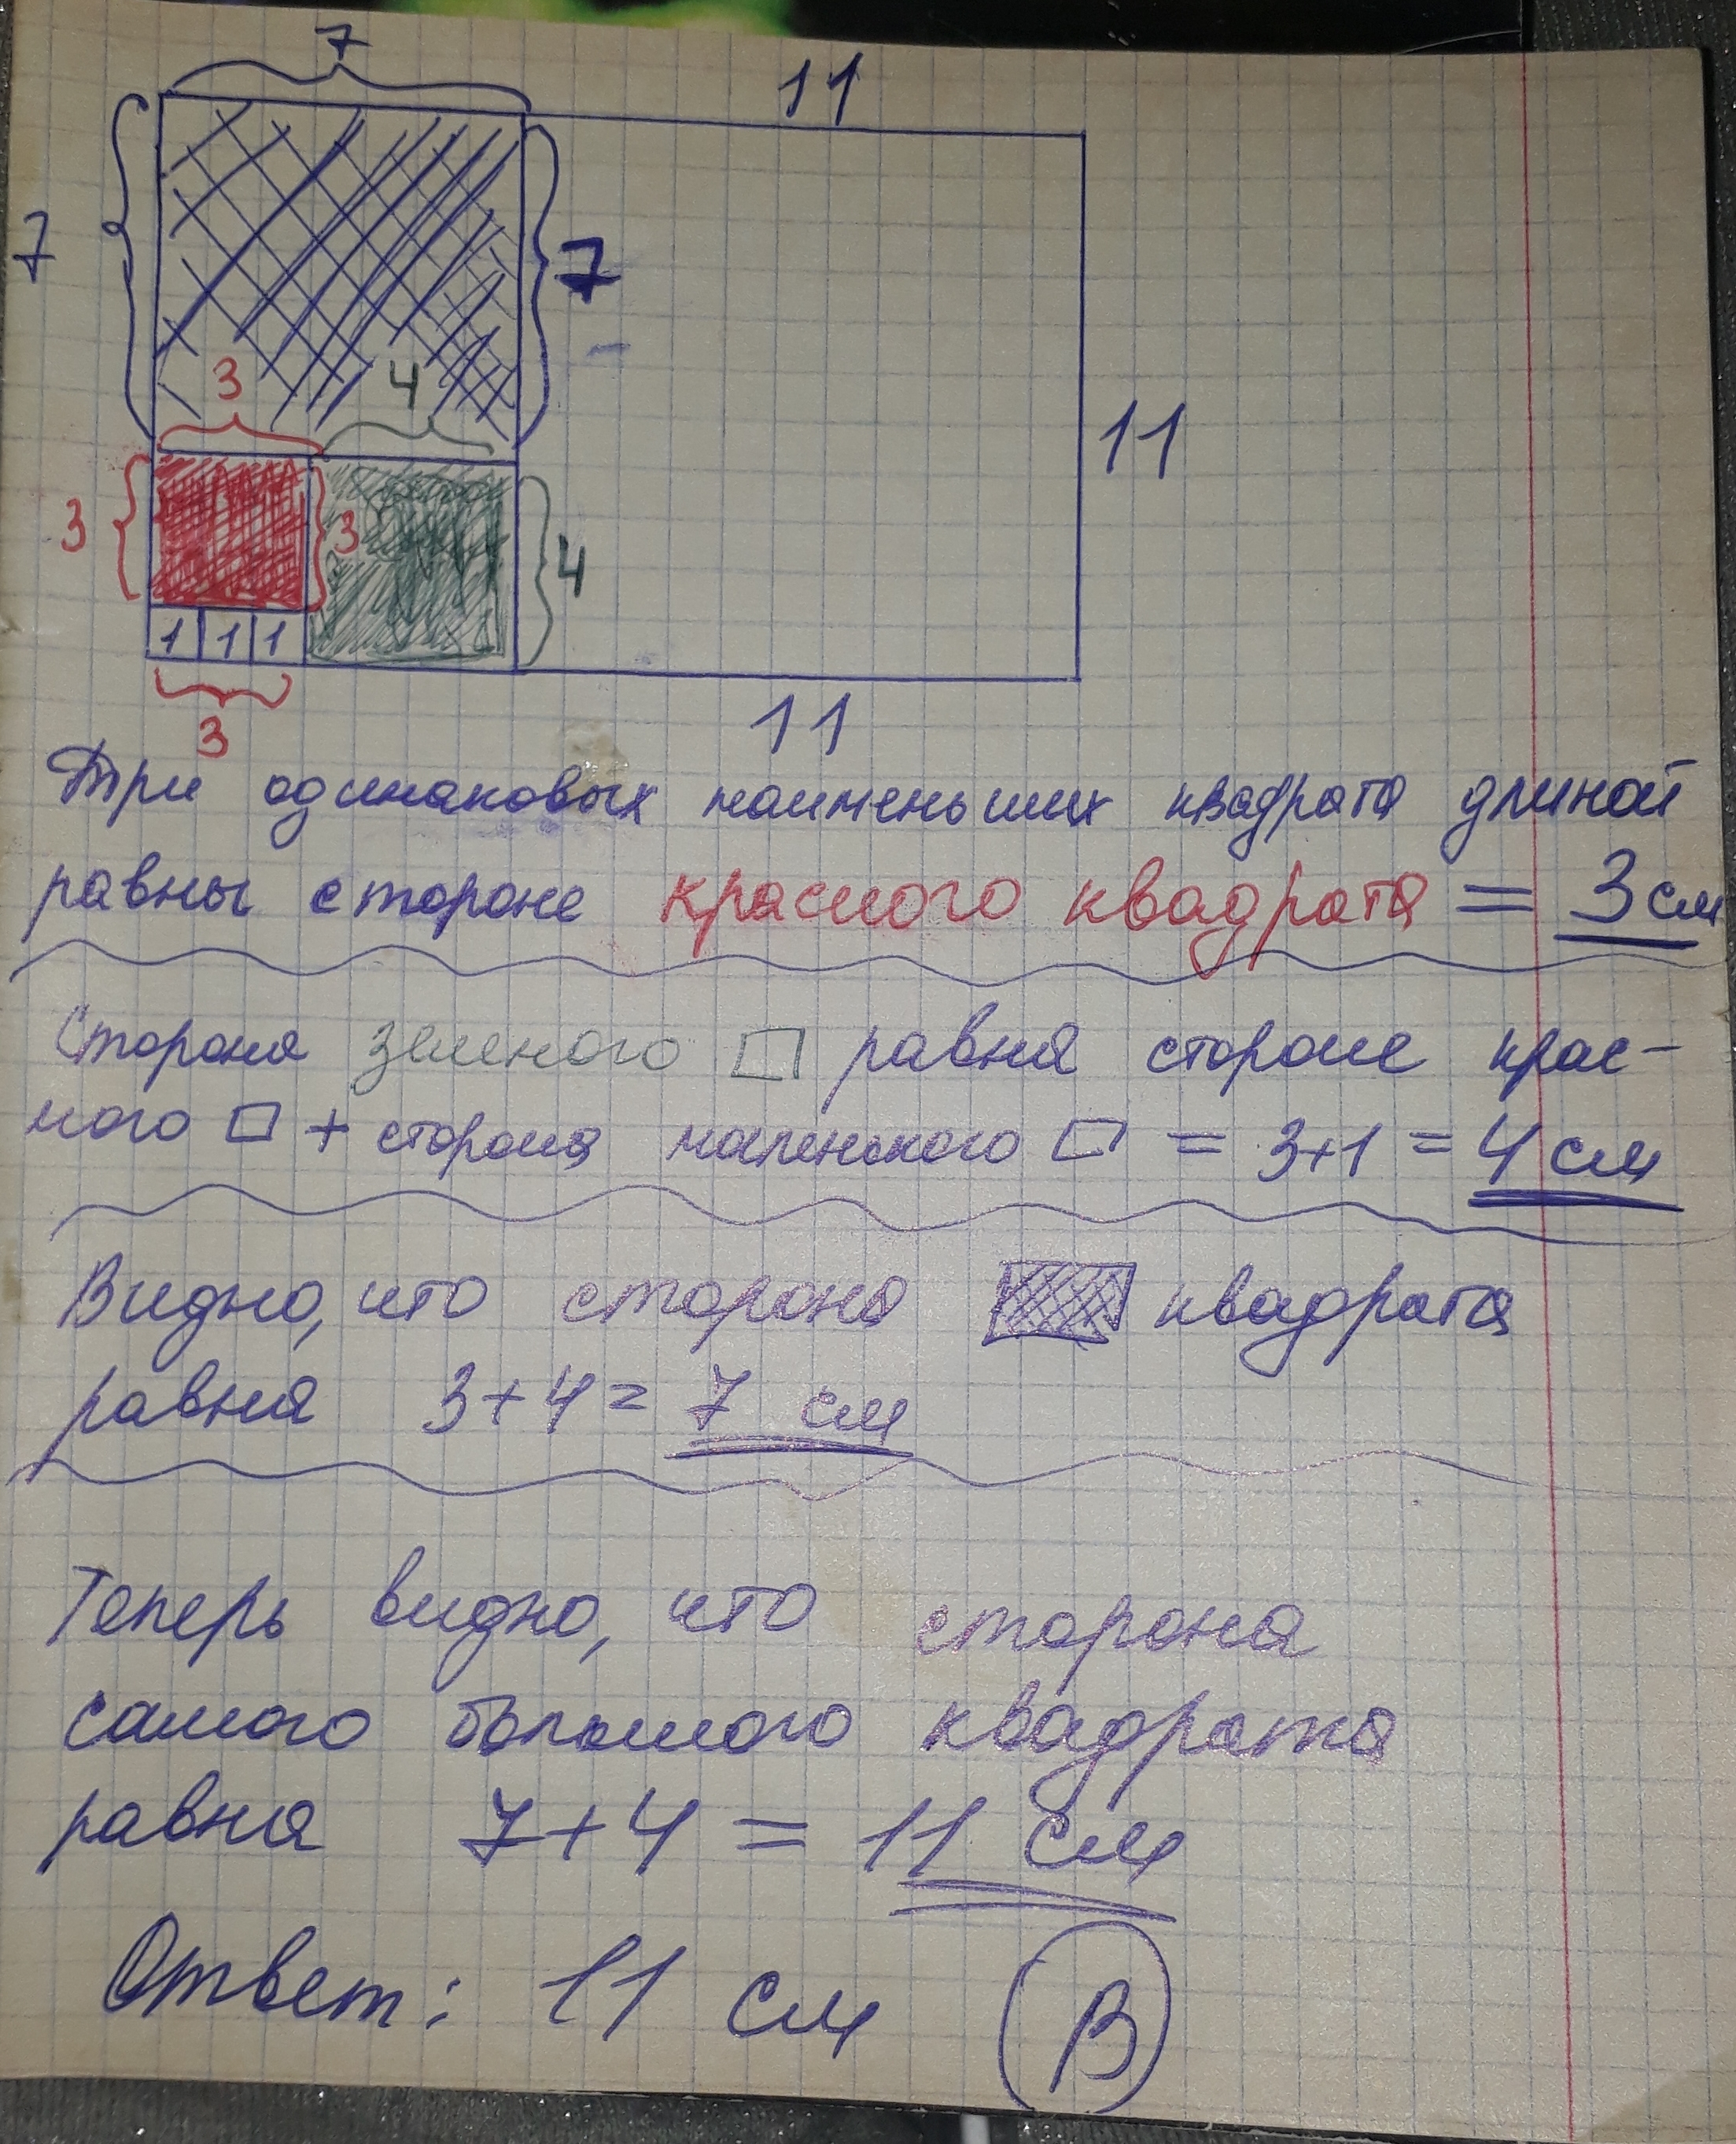 7
11
7
7
3
4
3
3
4
11
1 1 1
3
11
Три одинаковых наименьших квадрата длиной
равны стороне красного квадрата = 3 см
Сторона зеленого □ равна стороне крас-
ного □ + сторона маленького □ = 3+1 = 4 см
Видно, что сторона квадрата
равна 3+4= 7 см
Теперь видно, что сторона
самого большого квадрата
равна 7+4 = 11 см
Ответ: 11 см В